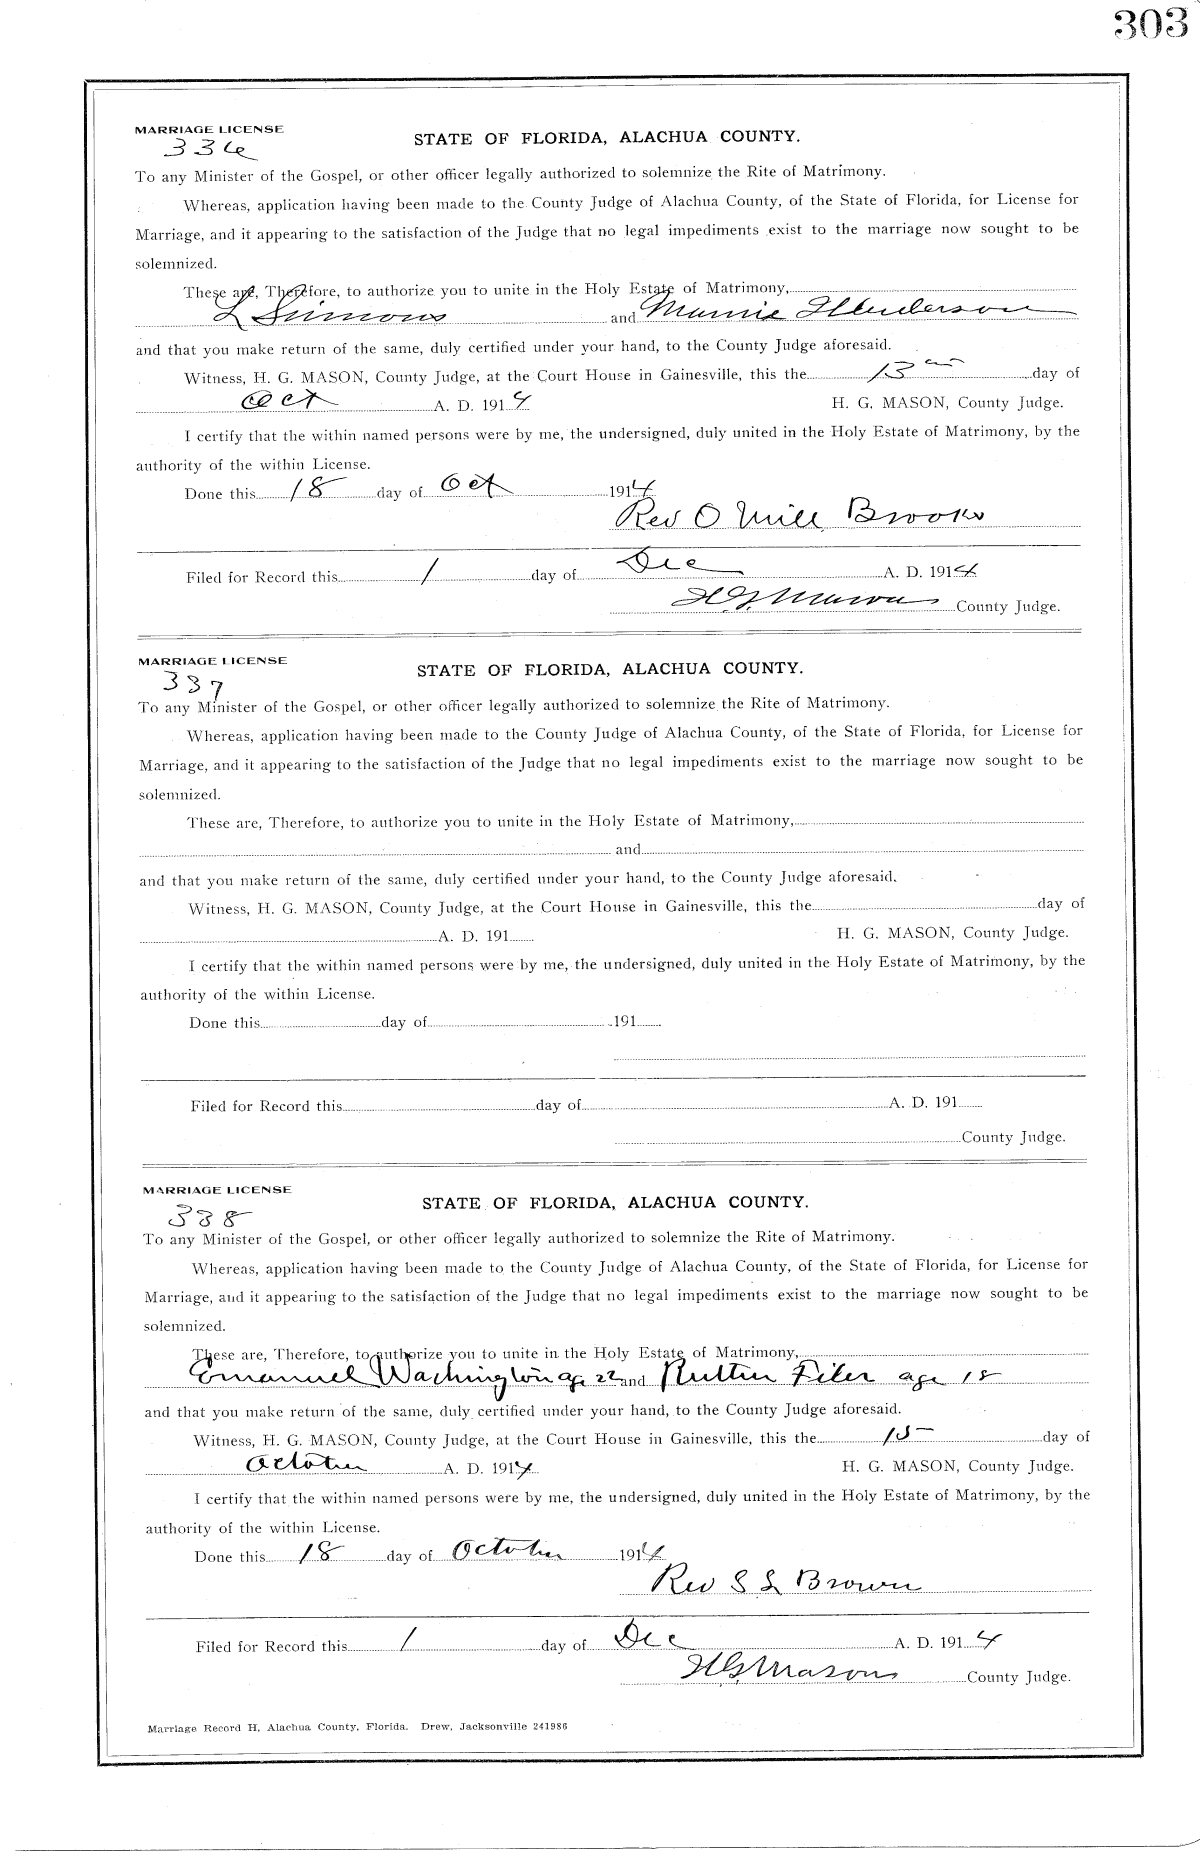 303
MARRIAGE LICENSE
336
STATE OF FLORIDA, ALACHUA COUNTY.
To any Minister of the Gospel, or other officer legally authorized to solemnize the Rite of Matrimony.
Whereas, application having been made to the County Judge of Alachua County, of the State of Florida, for License for
Marriage, and it appearing to the satisfaction of the Judge that no legal impediments exist to the marriage now sought to be
solemnized.
These are, Therefore, to authorize you to unite in the Holy Estate of Matrimony,
L Simmons and Mamie Henderson
and that you make return of the same, duly certified under your hand, to the County Judge aforesaid.
Witness, H. G. MASON, County Judge, at the Court House in Gainesville, this the 13 day of
Oct A. D. 1914 H. G. MASON, County Judge.
I certify that the within named persons were by me, the undersigned, duly united in the Holy Estate of Matrimony, by the
authority of the within License.
Done this 18 day of Oct 1914
Rev O Brooks
Filed for Record this 1 day of Dec A. D. 1914
H G Mason County Judge.
MARRIAGE LICENSE
337
STATE OF FLORIDA, ALACHUA COUNTY.
To any Minister of the Gospel, or other officer legally authorized to solemnize the Rite of Matrimony.
Whereas, application having been made to the County Judge of Alachua County, of the State of Florida, for License for
Marriage, and it appearing to the satisfaction of the Judge that no legal impediments exist to the marriage now sought to be
solemnized.
These are, Therefore, to authorize you to unite in the Holy Estate of Matrimony,
and
and that you make return of the same, duly certified under your hand, to the County Judge aforesaid.
Witness, H. G. MASON, County Judge, at the Court House in Gainesville, this the day of
A. D. 191 H. G. MASON, County Judge.
I certify that the within named persons were by me, the undersigned, duly united in the Holy Estate of Matrimony, by the
authority of the within License.
Done this day of 191
Filed for Record this day of A. D. 191
County Judge.
MARRIAGE LICENSE
338
STATE OF FLORIDA, ALACHUA COUNTY.
To any Minister of the Gospel, or other officer legally authorized to solemnize the Rite of Matrimony.
Whereas, application having been made to the County Judge of Alachua County, of the State of Florida, for License for
Marriage, and it appearing to the satisfaction of the Judge that no legal impediments exist to the marriage now sought to be
solemnized.
These are, Therefore, to authorize you to unite in the Holy Estate of Matrimony,
Emanuel Washington age 22 and Filer age 18
and that you make return of the same, duly certified under your hand, to the County Judge aforesaid.
Witness, H. G. MASON, County Judge, at the Court House in Gainesville, this the 15 day of
October A. D. 1914 H. G. MASON, County Judge.
I certify that the within named persons were by me, the undersigned, duly united in the Holy Estate of Matrimony, by the
authority of the within License.
Done this 18 day of October 1914
Rev S L Brown
Filed for Record this 1 day of Dec A. D. 1914
H G Mason County Judge.
Marriage Record H, Alachua County, Florida. Drew, Jacksonville 241986